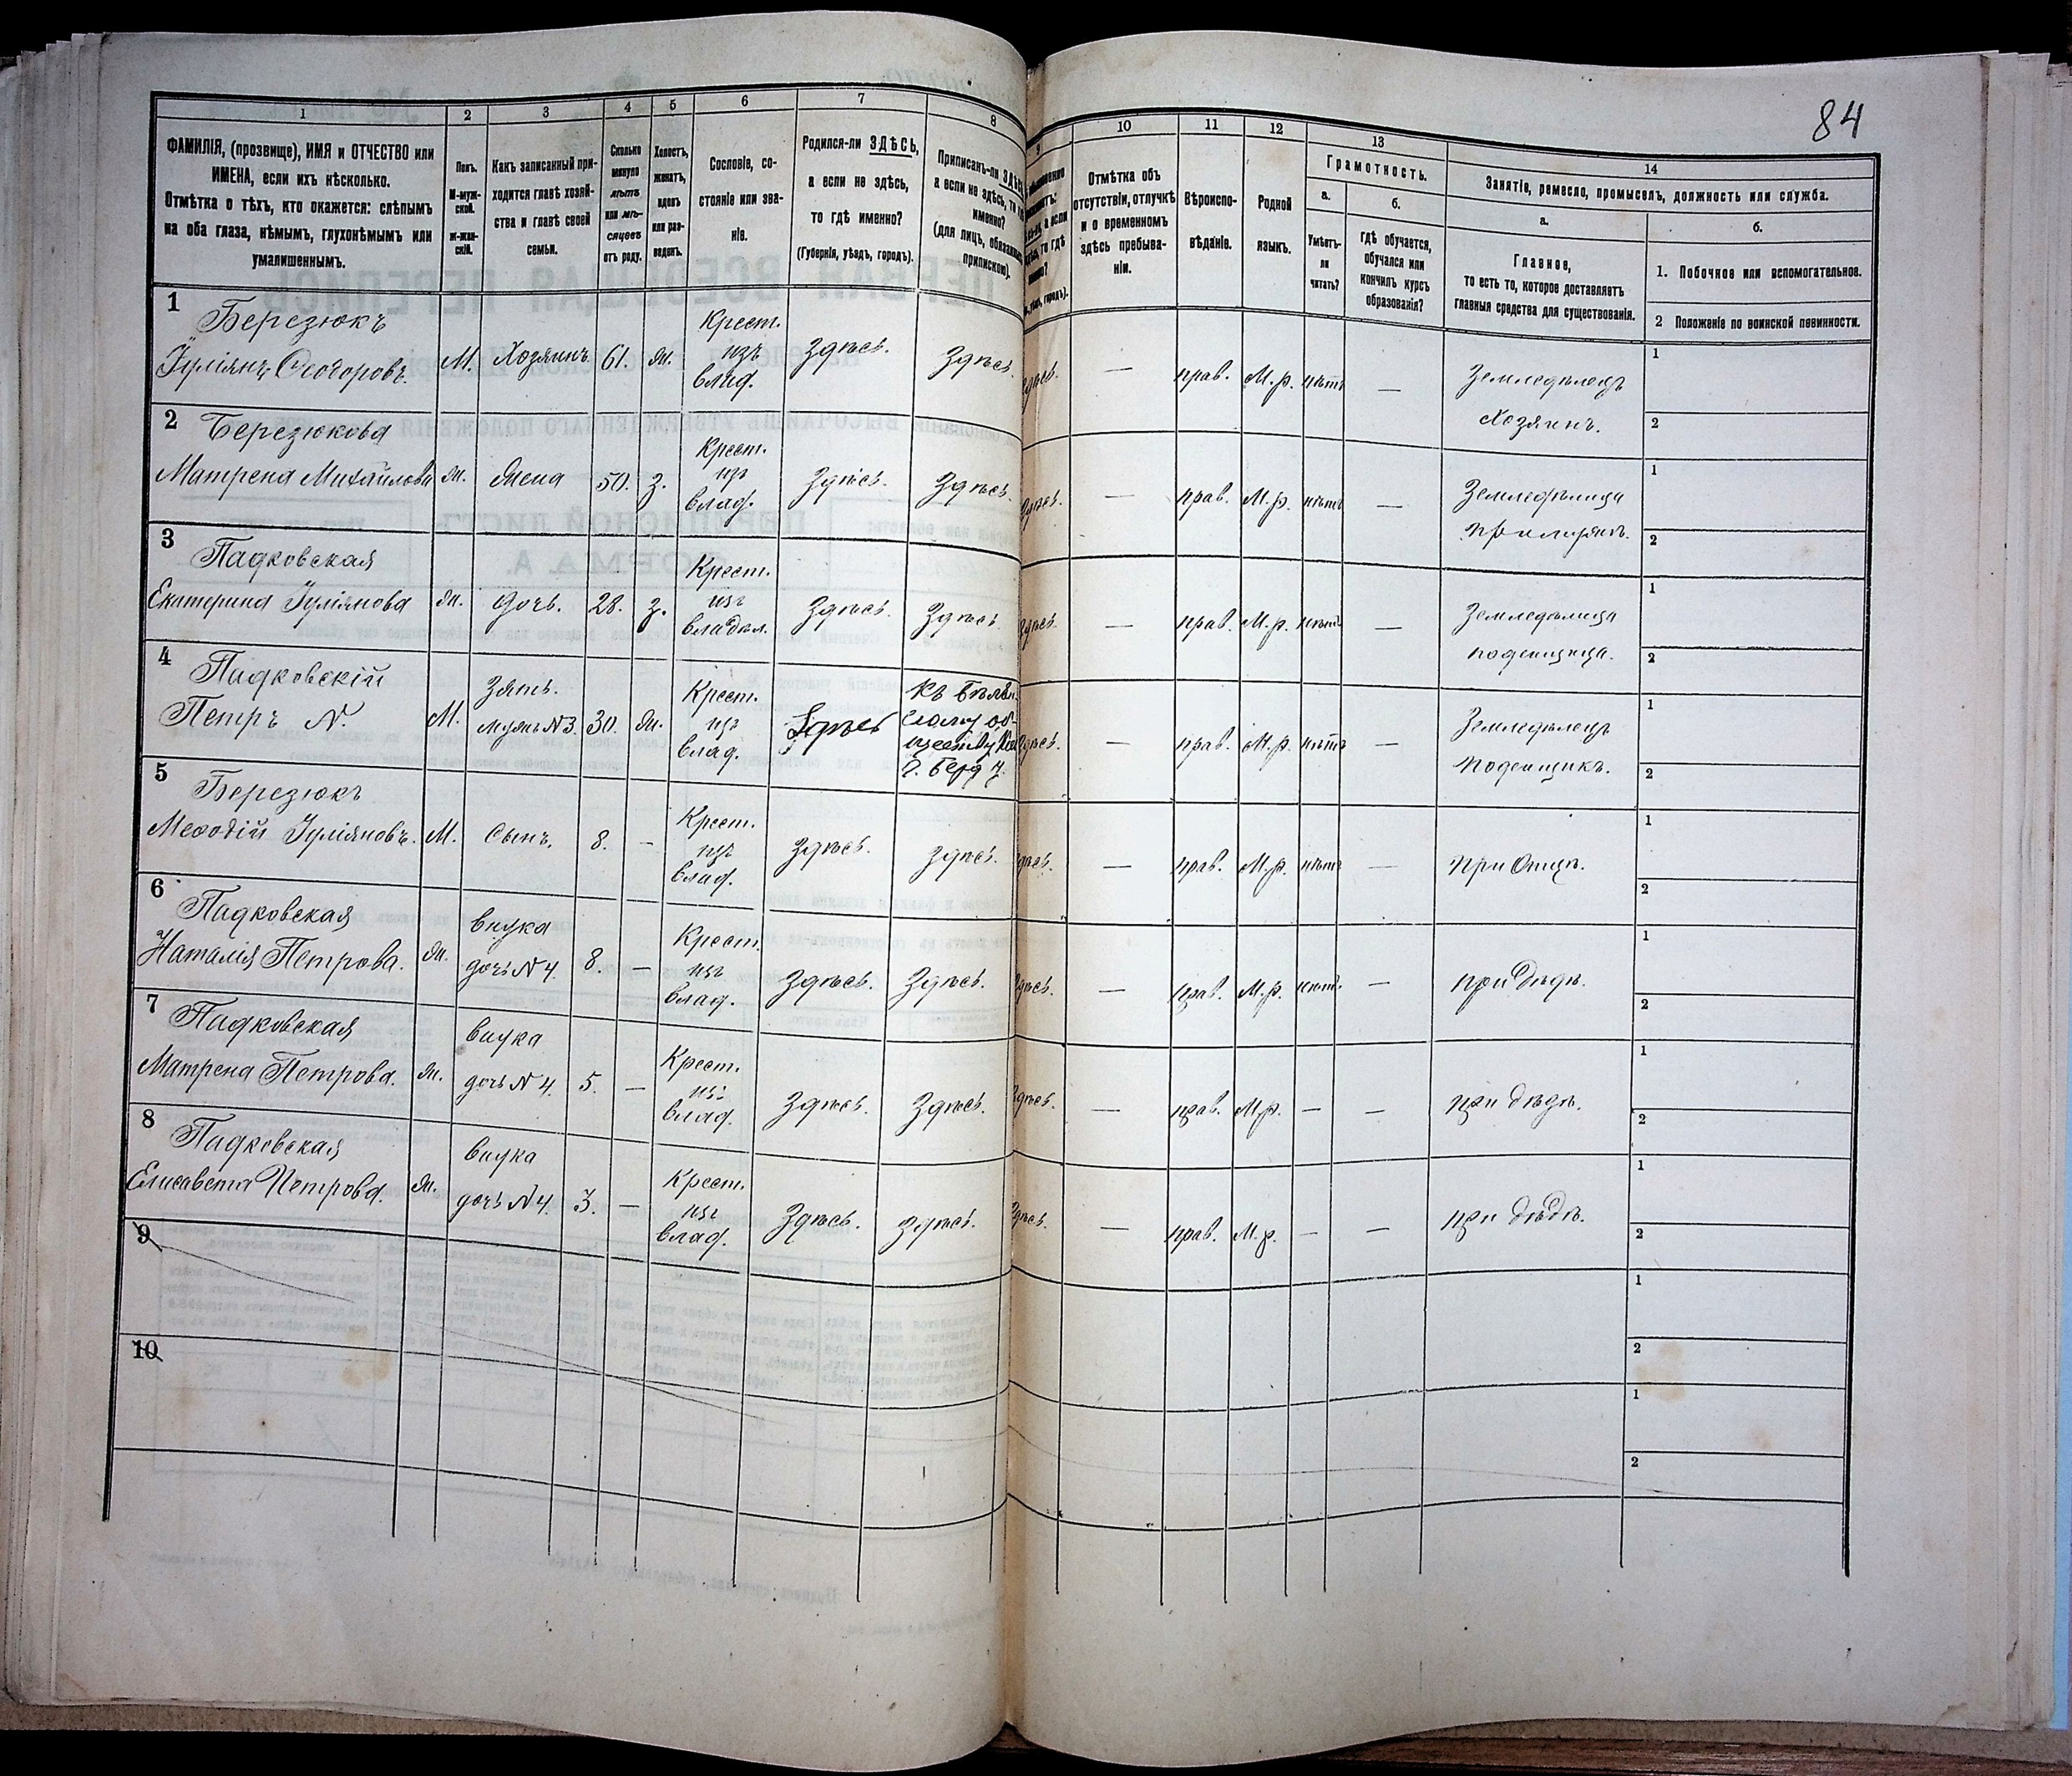 84
1 2 3 4 5 6 7 8 9 10 11 12 13 14
ФАМИЛІЯ, (прозвище), ИМЯ и ОТЧЕСТВО или
ИМЕНА, если ихъ нѣсколько.
Отмѣтка о тѣхъ, кто окажется: слѣпымъ
на оба глаза, нѣмымъ, глухонѣмымъ или
умалишеннымъ.
Полъ.
М-муж-
ской.
Ж-жен-
скій.
Какъ записанный при-
ходится главѣ хозяй-
ства и главѣ своей
семьи.
Сколько
минуло
лѣтъ
или мѣ-
сяцевъ
отъ роду.
Холостъ,
женатъ,
вдовъ
или раз-
веденъ.
Сословіе, со-
стояніе или зва-
ніе.
Родился-ли ЗДѢСЬ,
а если не здѣсь,
то гдѣ именно?
(Губернія, уѣздъ, городъ).
Приписанъ-ли
а если не здѣсь, то
именно?
(для лицъ,
припискою).
Отмѣтка объ
отсутствіи, отлучкѣ
и о временномъ
здѣсь пребыва-
ніи.
Вѣроиспо-
вѣданіе.
Родной
языкъ.
Грамотность.
а.
Умѣетъ-
ли
читать?
б.
гдѣ обучается,
обучался или
кончилъ курсъ
образованія?
Занятіе, ремесло, промыселъ, должность или служба.
а.
Главное,
то есть то, которое доставляетъ
главныя средства для существованія.
б.
1. Побочное или вспомогательное.
2 Положеніе по воинской повинности.
1 Березюкъ
Іуліянъ Ѳеодоровъ. М. Хозяинъ 61. ж. Крест. изъ влад. Здѣсь. Здѣсь. — прав. М.р. нѣтъ — Земледѣлецъ Хозяинъ. 1 2
2 Березюкова
Матрена Михайлова ж. Жена 50. з. Крест. изъ влад. Здѣсь. Здѣсь. — прав. М.р. нѣтъ — Земледѣлица 1 2
3 Падковская
Екатерина Іуліянова ж. дочь. 28. з. Крест. изъ владѣл. Здѣсь. Здѣсь. — прав. М.р. нѣтъ — Земледѣлица поденщица. 1 2
4 Падковскій
Петръ N. М. Зять. мужъ N3. 30. ж. Крест. изъ влад. Здѣсь Къ — прав. М.р. нѣтъ — Земледѣлецъ поденщикъ. 1 2
5 Березюкъ
Меѳодій Іуліяновъ. М. Сынъ. 8. — Крест. изъ влад. Здѣсь. Здѣсь. прав. М.р. нѣтъ — при Отцѣ. 1 2
6 Падковская
Наталія Петрова. ж. внука дочь N 4. 8. — Крест. изъ влад. Здѣсь. Здѣсь. — прав. М.р. нѣтъ. — при дѣдѣ. 1 2
7 Падковская
Матрена Петрова. ж. внука дочь N 4. 5. — Крест. изъ влад. Здѣсь. Здѣсь. — прав. М.р. — — при дѣдѣ. 1 2
8 Падковская
Елисавета Петрова. ж. внука дочь N 4. 3. — Крест. изъ влад. Здѣсь. Здѣсь. — прав. М.р. — — при дѣдѣ. 1 2
9 1 2
10 1 2